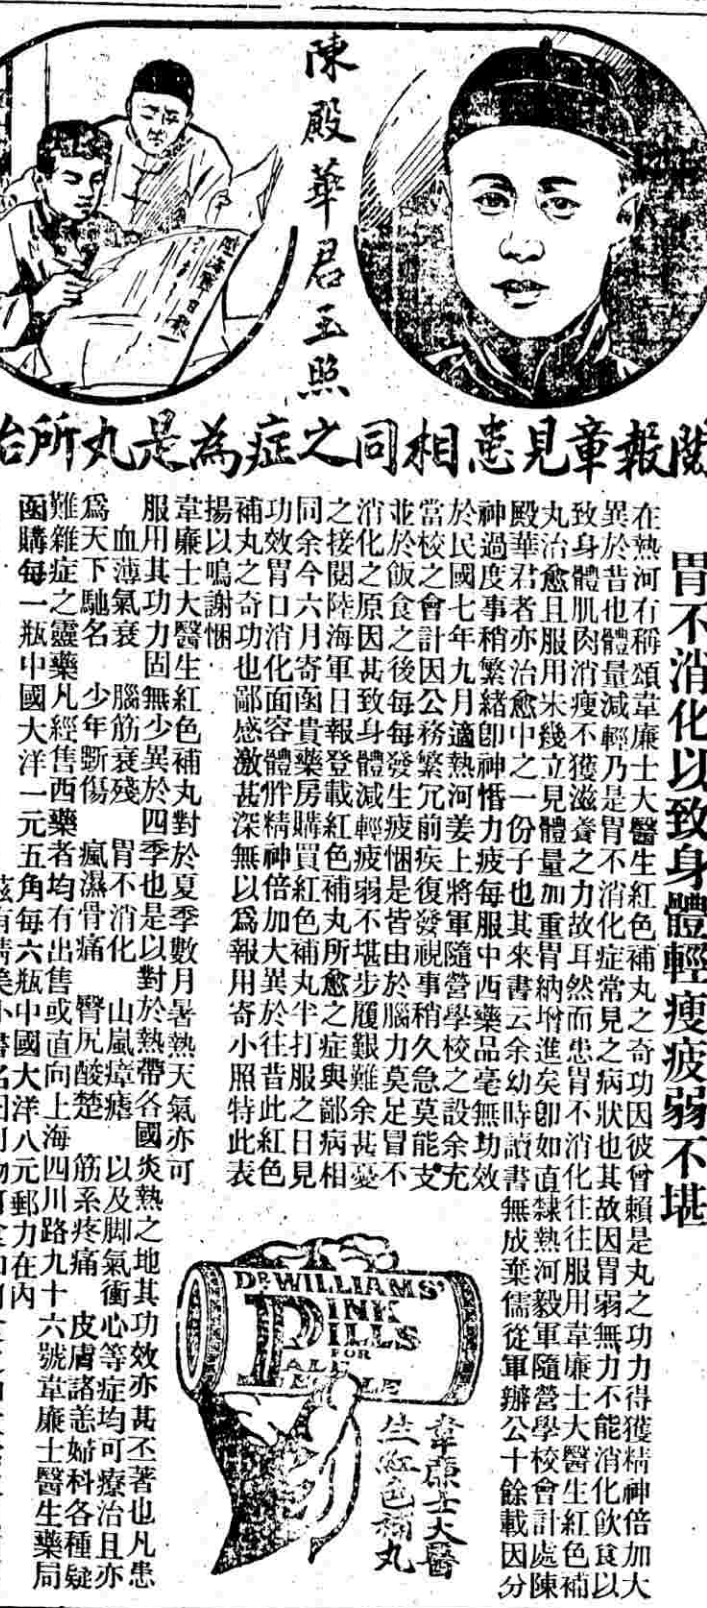 陳殿華君玉照
陸海軍日報
閱報章見患相同之症為是丸所治
胃不消化以致身體輕瘦疲弱不堪
在熱河有稱頌韋廉士大醫生紅色補丸之奇功因彼曾賴是丸之功力得獲精神倍加大
異於昔也體量減輕乃是胃不消化症常見之病狀也其故因胃弱無力不能消化飲食以
致身體肌肉消瘦不獲滋養之力故耳然而患胃不消化往往服用韋廉士大醫生紅色補
丸治愈且服用未幾立見體量加重胃納增進矣卽如直隸熱河毅軍隨營學校會計處陳
殿華君者亦治愈中之一份子也其來書云余幼時讀書無成棄儒從軍辦公十餘載因分
神過度事稍繁緒卽神惛力疲每服中西藥品毫無功效
於民國七年九月適熱河姜上將軍隨營學校之設余充
當校之會計因公務繁冗前疾復發視事稍久急莫能支
並於飯食之後每每發生疲悃是皆由於腦力莫足冒不
消化之原因甚致身體減輕疲弱不堪步履艱難余甚憂
之接閱陸海軍日報登載紅色補丸所愈之症與鄙病相
同余今六月寄函貴藥房購買紅色補丸半打服之日見
功效胃口消化面容體胖精神倍加大異於往昔此紅色
補丸之奇功也鄙感激甚深無以爲報用寄小照特此表
揚以鳴謝悃
韋廉士大醫生紅色補丸對於夏季數月暑熱天氣亦可
服用其功力固無少異於四季也是以對於熱帶各國炎熱之地其功效亦甚丕著也凡患
血薄氣衰 腦筋衰殘 胃不消化 山嵐瘴瘧 以及脚氣衝心等症均可療治且亦
爲天下馳名 少年斲傷 瘋濕骨痛 臀尻酸楚 筋系疼痛 皮膚諸恙婦科各種疑
難雜症之靈藥凡經售西藥者均有出售或直向上海四川路九十六號韋廉士醫生藥局
函購每一瓶中國大洋一元五角每六瓶中國大洋八元郵力在內
DR WILLIAMS'
PINK
PILLS
FOR
PALE
PEOPLE
韋廉士大醫
生紅色補丸